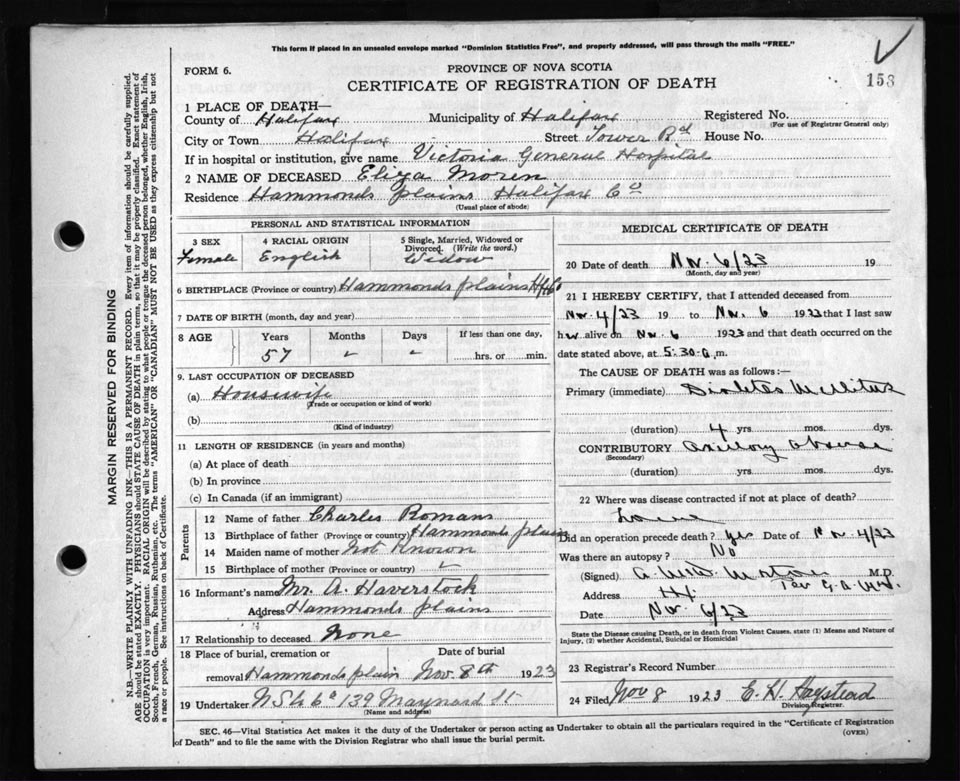 This form if placed in an unsealed envelope marked "Dominion Statistics Free", and properly addressed, will pass through the mails "FREE."
FORM 6.
PROVINCE OF NOVA SCOTIA
158
CERTIFICATE OF REGISTRATION OF DEATH
1 PLACE OF DEATH—
County of Halifax Municipality of Halifax Registered No.
(For use of Registrar General only)
City or Town Halifax Street Tower Rd House No.
If in hospital or institution, give name Victoria General Hospital
2 NAME OF DECEASED Eliza Moren
Residence Hammonds plains Halifax Co
(Usual place of abode)
PERSONAL AND STATISTICAL INFORMATION
3 SEX
Female
4 RACIAL ORIGIN
English
5 Single, Married, Widowed or Divorced. (Write the word.)
Widow
6 BIRTHPLACE (Province or country) Hammonds plains Hfx Co
7 DATE OF BIRTH (month, day and year)
8 AGE
Years Months Days If less than one day,
57 hrs. or min.
9. LAST OCCUPATION OF DECEASED
(a) Housewife
(Trade or occupation or kind of work)
(b)
(Kind of industry)
11 LENGTH OF RESIDENCE (in years and months)
(a) At place of death
(b) In province
(c) In Canada (if an immigrant)
Parents
12 Name of father Charles Romans
13 Birthplace of father (Province or country) Hammonds plains
14 Maiden name of mother Not Known
15 Birthplace of mother (Province or country)
16 Informant's name Mr. A. Haverstock
Address Hammonds plains
17 Relationship to deceased None
18 Place of burial, cremation or Date of burial
removal Hammonds plain Nov. 8th 1923
19 Undertaker N S U Co 139 Maynard St
(Name and address)
MEDICAL CERTIFICATE OF DEATH
20 Date of death Nov. 6/23 19
(Month, day and year)
21 I HEREBY CERTIFY, that I attended deceased from
Nov. 4/23 19 to Nov. 6 1923 that I last saw
her alive on Nov. 6 1923 and that death occurred on
date stated above, at 5.30 a m.
The CAUSE OF DEATH was as follows:—
Primary (immediate) Diabetes Mellitus
(duration) 4 yrs. mos. dys.
CONTRIBUTORY Axillary abscess
(Secondary)
(duration) yrs. mos. dys.
22 Where was disease contracted if not at place of death?
Home
Did an operation precede death? yes Date of Nov. 4/23
Was there an autopsy? No
(Signed) M.D.
Address Hx.
Date Nov. 6/23
State the Disease causing Death, or in death from Violent Causes, state (1) Means and Nature of Injury, (2) whether Accidental, Suicidal or Homicidal
23 Registrar's Record Number
24 Filed Nov 8 1923 E. H. Haystead
Division Registrar.
SEC. 46—Vital Statistics Act makes it the duty of the Undertaker or person acting as Undertaker to obtain all the particulars required in the "Certificate of Registration
of Death" and to file the same with the Division Registrar who shall issue the burial permit.
(OVER)
MARGIN RESERVED FOR BINDING
N.B.—WRITE PLAINLY, WITH UNFADING INK—THIS IS A PERMANENT RECORD. Every item of information should be carefully supplied.
AGE should be stated EXACTLY. PHYSICIANS should STATE CAUSE OF DEATH in plain terms, so that it may be properly classified. Exact statement of
OCCUPATION is very important. RACIAL ORIGIN will be described by stating to what people or tongue the deceased person belonged, whether English, Irish,
Scotch, French, German, Russian, Ruthenian, etc. The terms "AMERICAN" OR "CANADIAN" MUST NOT BE USED as they express citizenship but not
a race or people. See instructions on back of Certificate.